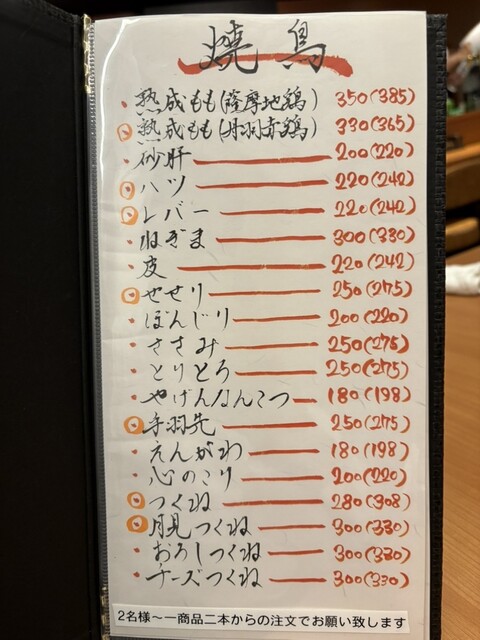 焼鳥
熟成もも(薩摩地鶏) 350(385)
熟成もも(丹羽赤鶏) 330(365)
砂肝 200(220)
ハツ 220(242)
レバー 220(242)
ねぎま 300(330)
皮 220(242)
せせり 250(275)
ぼんじり 200(220)
ささみ 250(275)
とりとろ 250(275)
やげんなんこつ 180(198)
手羽先 250(275)
えんがわ 180(198)
心のこり 200(220)
つくね 280(308)
月見つくね 300(330)
おろしつくね 300(330)
チーズつくね 300(330)
2名様～一商品二本からの注文でお願い致します